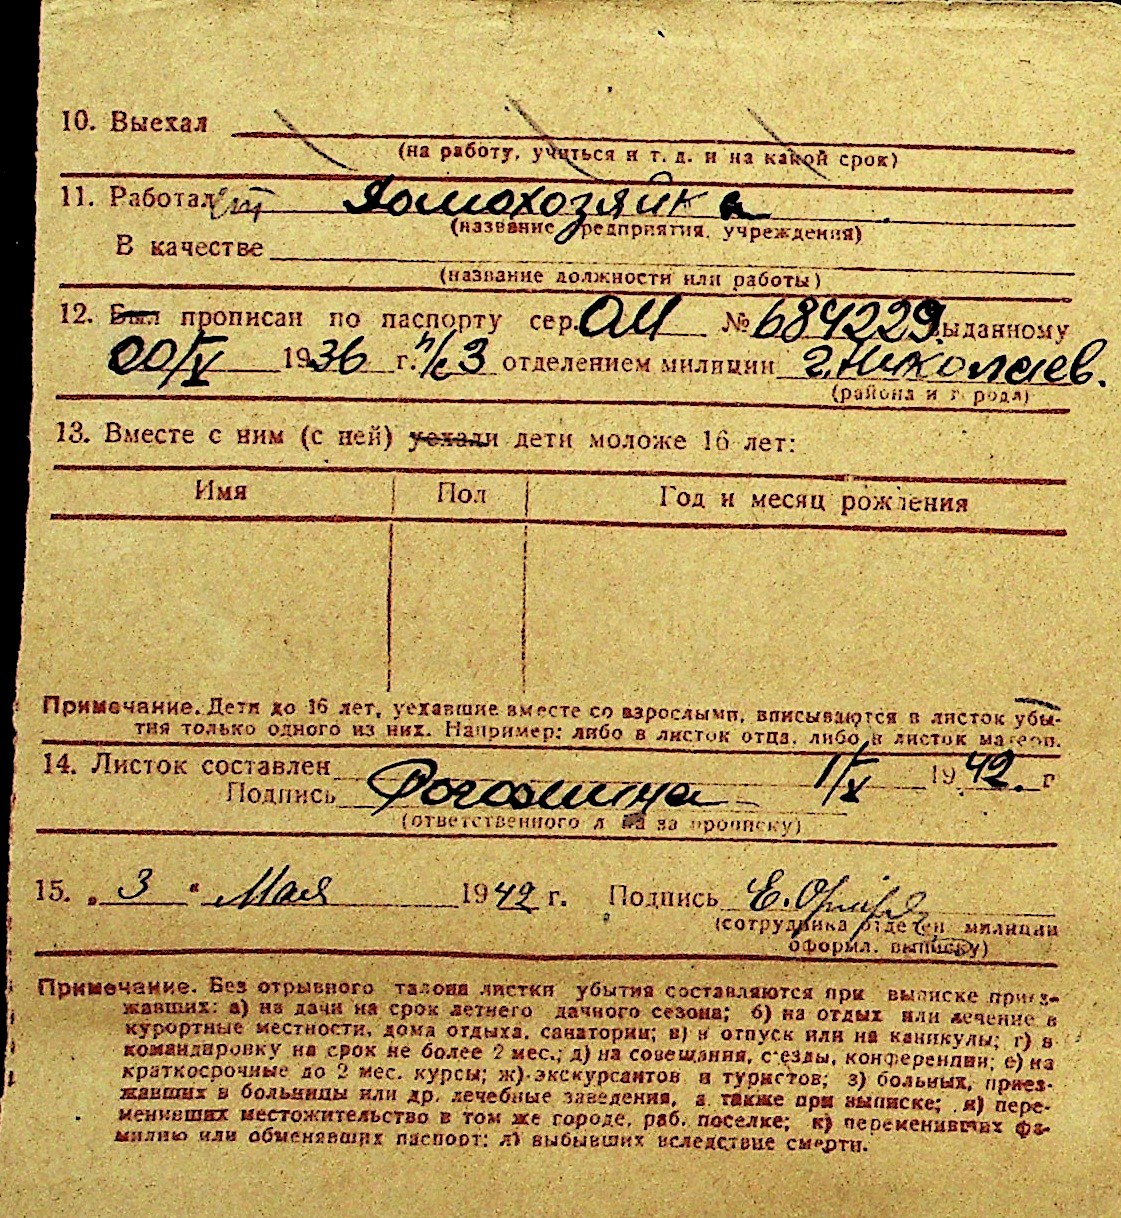 10. Выехал
(на работу, учиться и т. д. и на какой срок)
11. Работал Домохозяйка
(название предприятия, учреждения)
В качестве
(название должности или работы)
12. Был прописан по паспорту сер. ОИ № 684229 выданному
20/V 1936 г. 3 отделением милиции г. Николаев.
(района и города)
13. Вместе с ним (с ней) уехали дети моложе 16 лет:
Имя Пол Год и месяц рождения
Примечание. Дети до 16 лет, уехавшие вместе со взрослыми, вписываются в листок убы-
тия только одного из них. Например: либо в листок отца, либо в листок матери.
14. Листок составлен 1/V 1942. г
Подпись
(ответственного лица за прописку)
15. „3“ Мая 1942 г. Подпись Е.
(сотрудника отделен милиции
оформл. выписку)
Примечание. Без отрывного талона листки убытия составляются при выписке приез-
жавших: а) на дачи на срок летнего дачного сезона; б) на отдых или лечение в
курортные местности, дома отдыха, санатории; в) в отпуск или на каникулы; г) в
командировку на срок не более 2 мес.; д) на совещания, съезды, конференции; е) на
краткосрочные до 2 мес. курсы; ж) экскурсантов и туристов; з) больных, приез-
жавших в больницы или др. лечебные заведения, а также при выписке; и) пере-
менивших местожительство в том же городе, раб. поселке; к) переменивших фа-
милию или обменявших паспорт; л) выбывших вследствие смерти.